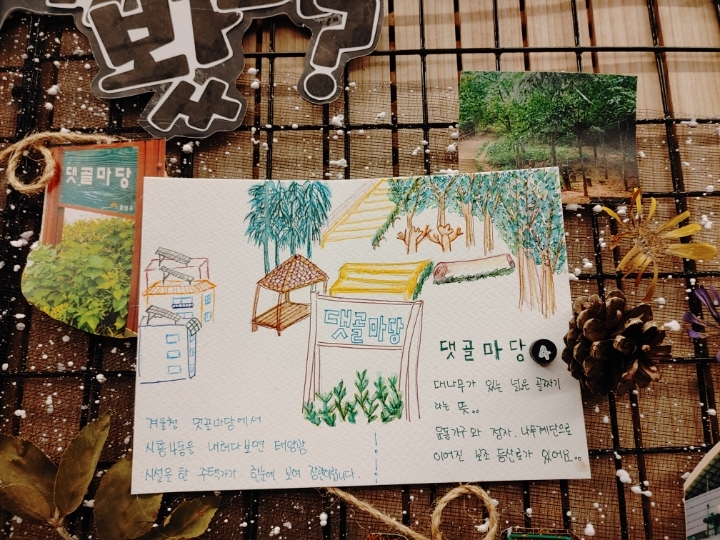 댓골마당
댓골마당
댓골마당 4
대나무가 있는 넓은 골짜기
라는 뜻。。
운동기구와 정자, 나무계단으로
이어진 보조 등산로가 있어요。。
겨울철 댓골마당에서
시흥4동을 내려다보면 태양광
시설을 한 주택가가 한눈에 보여 장관이랍니다.